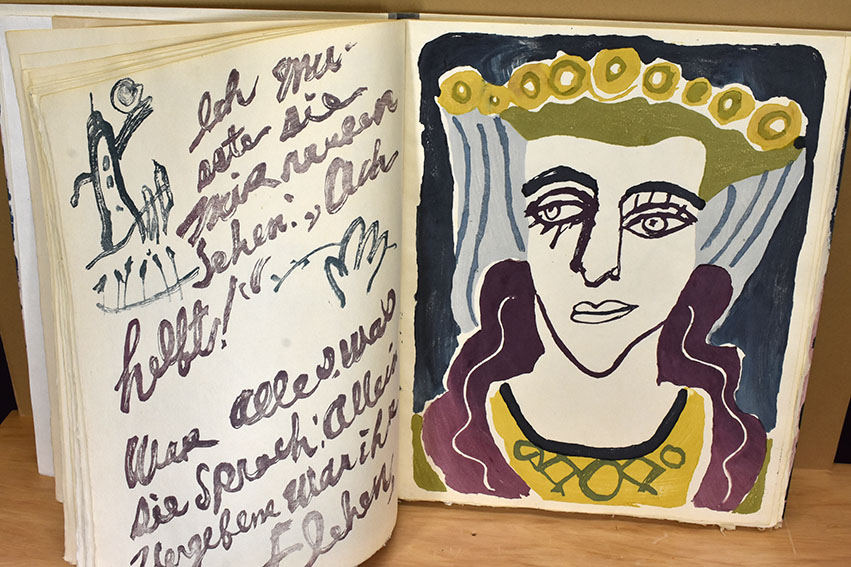 Ich mu-
sste sie

Sehen: „Ach
helft!“
War alles was
sie sprach: Allein
Vergebens war ihr
Flehen,